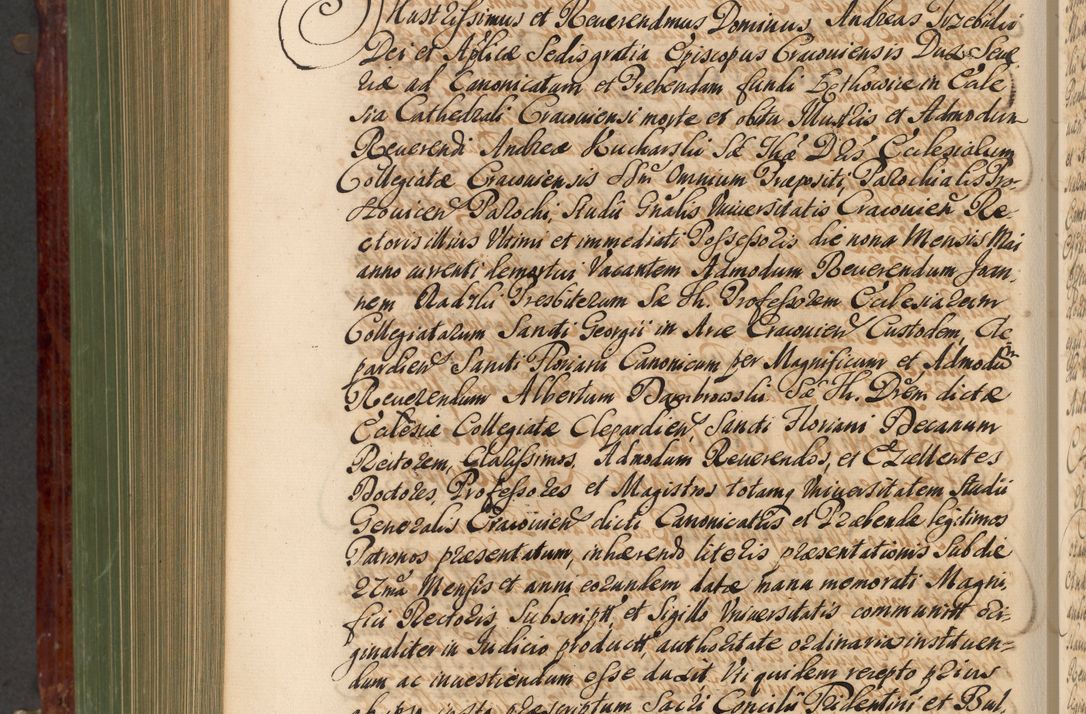 Illustrissimus et Reuerendmus Dominus Andreas Trzebicki
Dei et Aplicæ Sedis gratia Episcopus Cracouiensis Dux Seue
riæ ad Canonicatum et Præbendam fundi Zethowice in Eccle
sia Cathedrali Cracouiensi morte et obitu Illustris et Admodum
Reuerendi Andreæ Kucharski Sæ Thæ Dris Ecclesiarum
Collegiatæ Cracouiensis SSm Omnium Præpositi Parochialis Pro
szouicen Parochi, Studii Gnalis Vniuersitatis Cracouien Re-
ctoris illius Vltimi et immediati Possessoris die nona Mensis Mai
anno currenti demortui Vacantem Admodum Reuerendum Joan-
nem Radzki Presbiterum Sæ Th. Professorem Ecclesiarum
Collegiatarum Sancti Georgii in Arce Cracouien Custodem, Cle
pardien Sancti Floriani Canonicum per Magnificum et Admodum
Reuerendum Albertum Dambrowski Sæ Th. Drem dictæ
Ecclesiæ Collegiatæ Clepardien Sancti Floriani Decanum
Rectorem, Clarissimos, Admodum Reuerendos, et Excellentes
Doctores Professores et Magistros totamq Vniuersitatem Studii
Generalis Cracouien dicti Canonicattus et Præbendæ legitimos
Patronos præsentatum, inhærendo literis præsentationis Sub die
27ma Mensis et anni eorundem datæ manu memorati Magni,
fici Rectoris Subscript et Sigillo Vniuersitatis communitt ori
ginaliter in Iudicio productt authoritate ordinaria instituen=
dum ac inuestiendum esse duxit. Vti quidem recepto prius
ab eo iuxta præscriptum Sacri Concilii Tridentini et Bul,